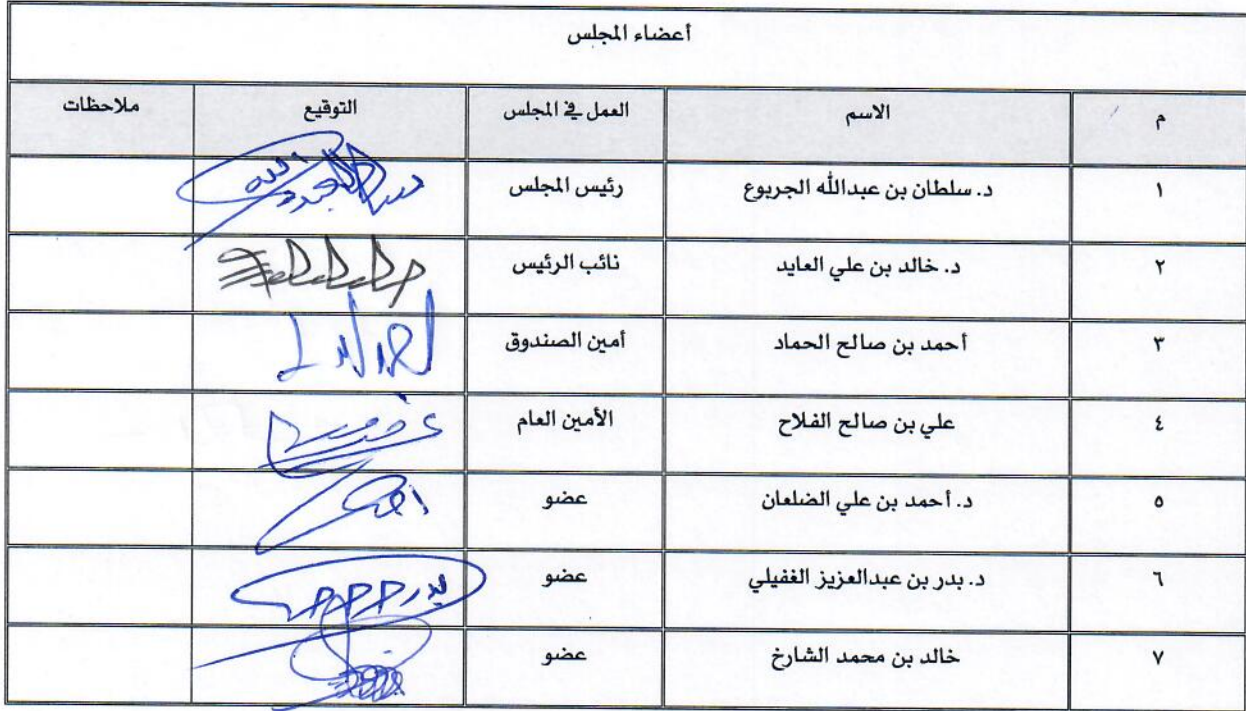 أعضاء المجلس
م الاسم العمل في المجلس التوقيع ملاحظات
١ د. سلطان بن عبدالله الجربوع رئيس المجلس
٢ د. خالد بن علي العايد نائب الرئيس
٣ أحمد بن صالح الحماد أمين الصندوق
٤ علي بن صالح الفلاح الأمين العام
٥ د. أحمد بن علي الضلعان عضو
٦ د. بدر بن عبدالعزيز الغفيلي عضو
٧ خالد بن محمد الشارخ عضو